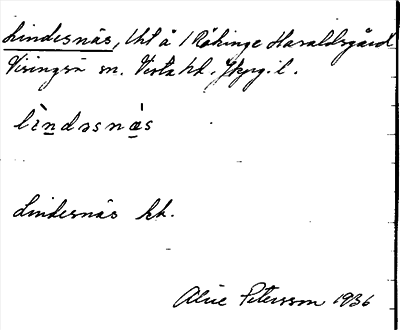 Lindesnäs, lht å 1 Rökinge Haraldsgård
Visingsö sn. Vista hd. Jkpg. l.
lìndəsnä̀s
Lindesnäs hd.
Alice Petersson 1936